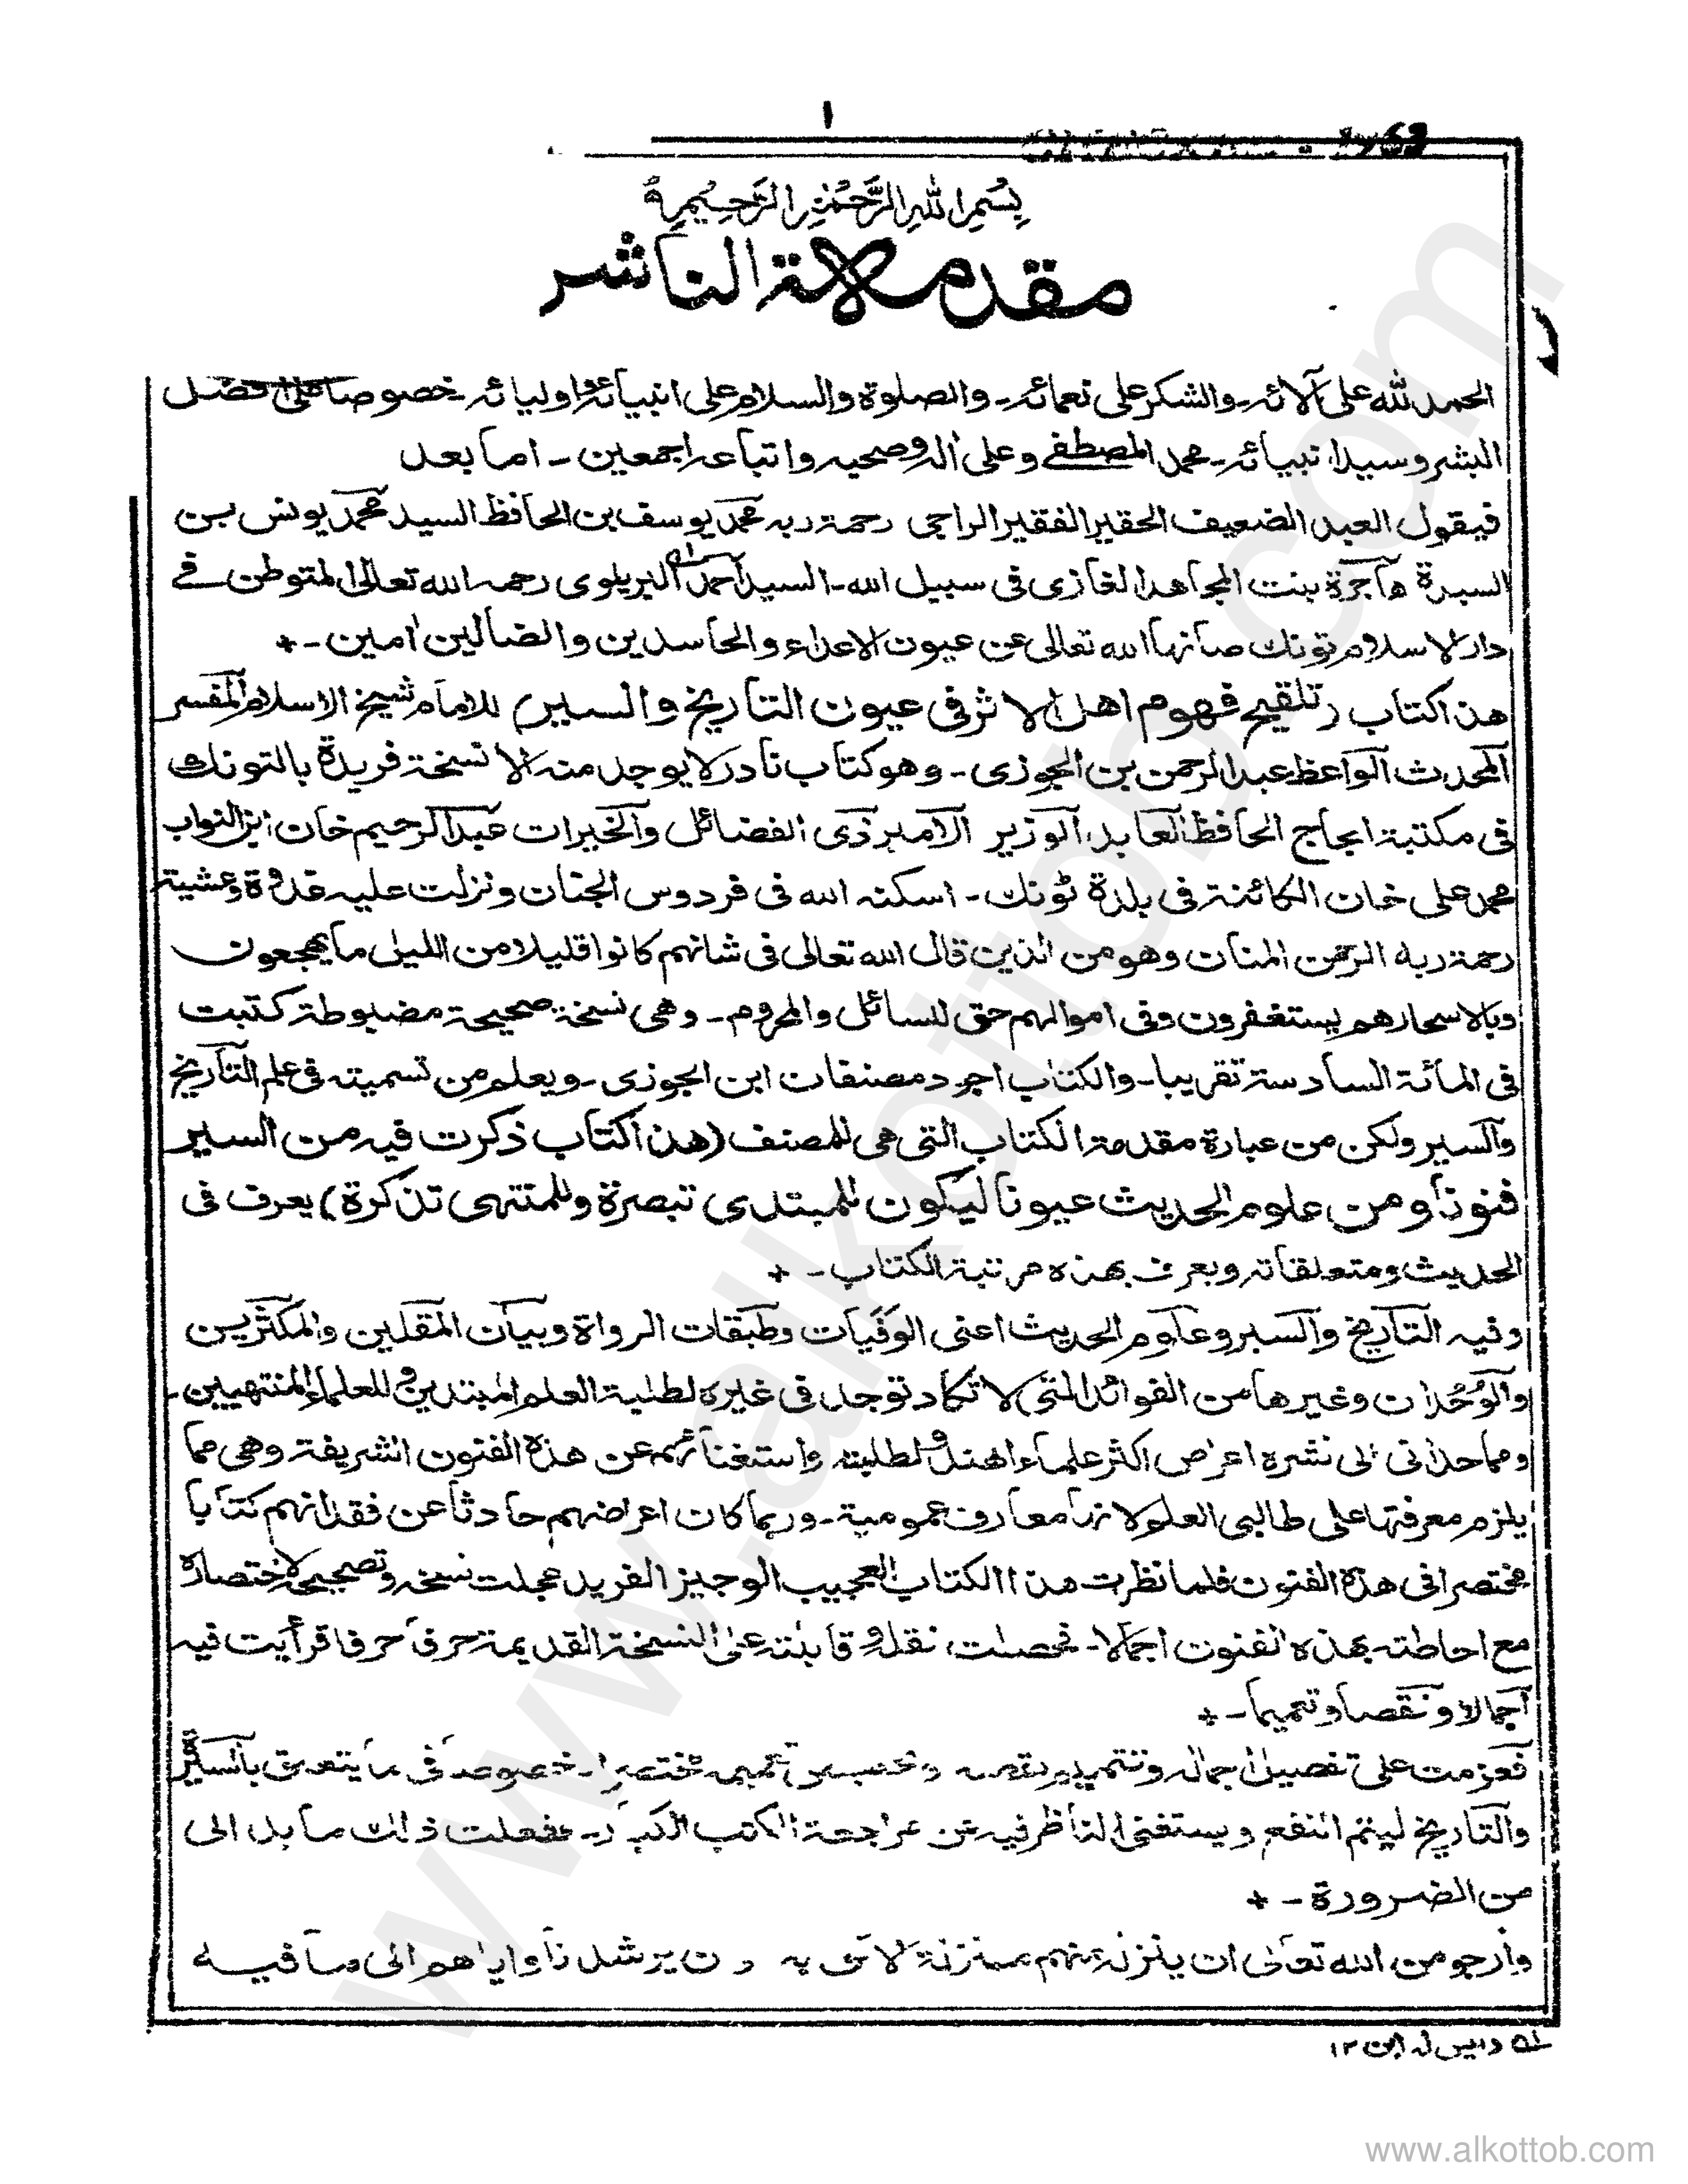 ١
بِسْمِ اللهِ الرَّحْمٰنِ الرَّحِيْمِ
مقدمة الناشر
الحمد لله على آلائه ـ والشكر على نعمائه ـ والصلوة والسلام على انبيائه واوليائه ـ خصوصا على افضل
البشر وسيد انبيائه ـ محمد المصطفى وعلى اله وصحبه واتباعه اجمعين ـ اما بعد
فيقول العبد الضعيف الحقير الفقير الراجى رحمة ربه محمد يوسف بن الحافظ السيد محمد يونس بن
السيدة هاجرة بنت المجاهد الغازى فى سبيل الله ـ السيد احمد البريلوى رحمه الله تعالى المتوطن فى
دار الاسلام تونك صانها الله تعالى عن عيون الاعداء والحاسدين والضالين امين ـ +
هذا كتاب (تلقيح فهوم اهل الاثر فى عيون التاريخ والسير) للامام شيخ الاسلام المفسر
المحدث الواعظ عبد الرحمن بن الجوزى ـ وهو كتاب نادر لا يوجد منه الا نسخة فريدة بالتونك
فى مكتبة الحاج الحافظ العابد الوزير الامير ذى الفضائل والخيرات عبد الرحيم خان ابن النواب
محمد على خان الكائنة فى بلدة ٹونك ـ اسكنه الله فى فردوس الجنان ونزلت عليه غدوة وعشية
رحمة ربه الرحمن المنان وهو من الذين قال الله تعالى فى شانهم كانوا قليلا من الليل ما يهجعون
وبالاسحار هم يستغفرون وفى اموالهم حق للسائل والمحروم ـ وهى نسخة صحيحة مضبوطة كتبت
فى المائة السادسة تقريبا ـ والكتاب اجود مصنفات ابن الجوزى ـ ويعلم من تسميته فى علم التاريخ
والسير ولكن من عبارة مقدمة الكتاب التى هى للمصنف (هذا كتاب ذكرت فيه من السير
فنونا ومن علوم الحديث عيونا ليكون للمبتدى تبصرة وللمنتهى تذكرة) يعرف فى
الحديث ومتعلقاته ويعرف بهذه مرتبة الكتاب ـ +
وفيه التاريخ والسير وعلوم الحديث اعنى الوَفَيات وطبقات الرواة وبيان المقلين والمكثرين
والوُحْدان وغيرها من الفوائد التى لا تكاد توجد فى غيره لطلبة العلم المبتدين وللعلماء المنتهيين ـ
ومما حدانى الى نشره اعراض اكثر علماء الهند وطلبته واستغنائهم عن هذه الفنون الشريفة وهى مما
يلزم معرفتها على طالبى العلم لانها معارف عمومية ـ وربما كان اعراضهم حادثا عن فقدانهم كتابا
مختصرا فى هذه الفنون فلما نظرت هذا الكتاب العجيب الوجيز الفريد عجلت نسخه وتصحيحه لاختصاره
مع احاطته بهذه الفنون اجمالا ـ فحصلت نقله وقابلته على النسخة القديمة حرفا حرفا فرأيت فيه
اجمالا ونقصا وتعميما ـ +
فعزمت على تفصيل اجماله وتتميم نقصه وتخصيص تعميمه مختصرا ـ خصوصا فى ما يتعلق بالسير
والتاريخ ليتم النفع ويستغنى الناظر فيه عن مراجعة الكتب الكبار ـ ففعلت ذلك ما بدا لى
من الضرورة ـ +
وارجو من الله تعالى ان ينزله منهم بمنزلة لائق به و ن يرشدنا واياهم الى ما فيه
www.alkottob.com
www.alkottob.com